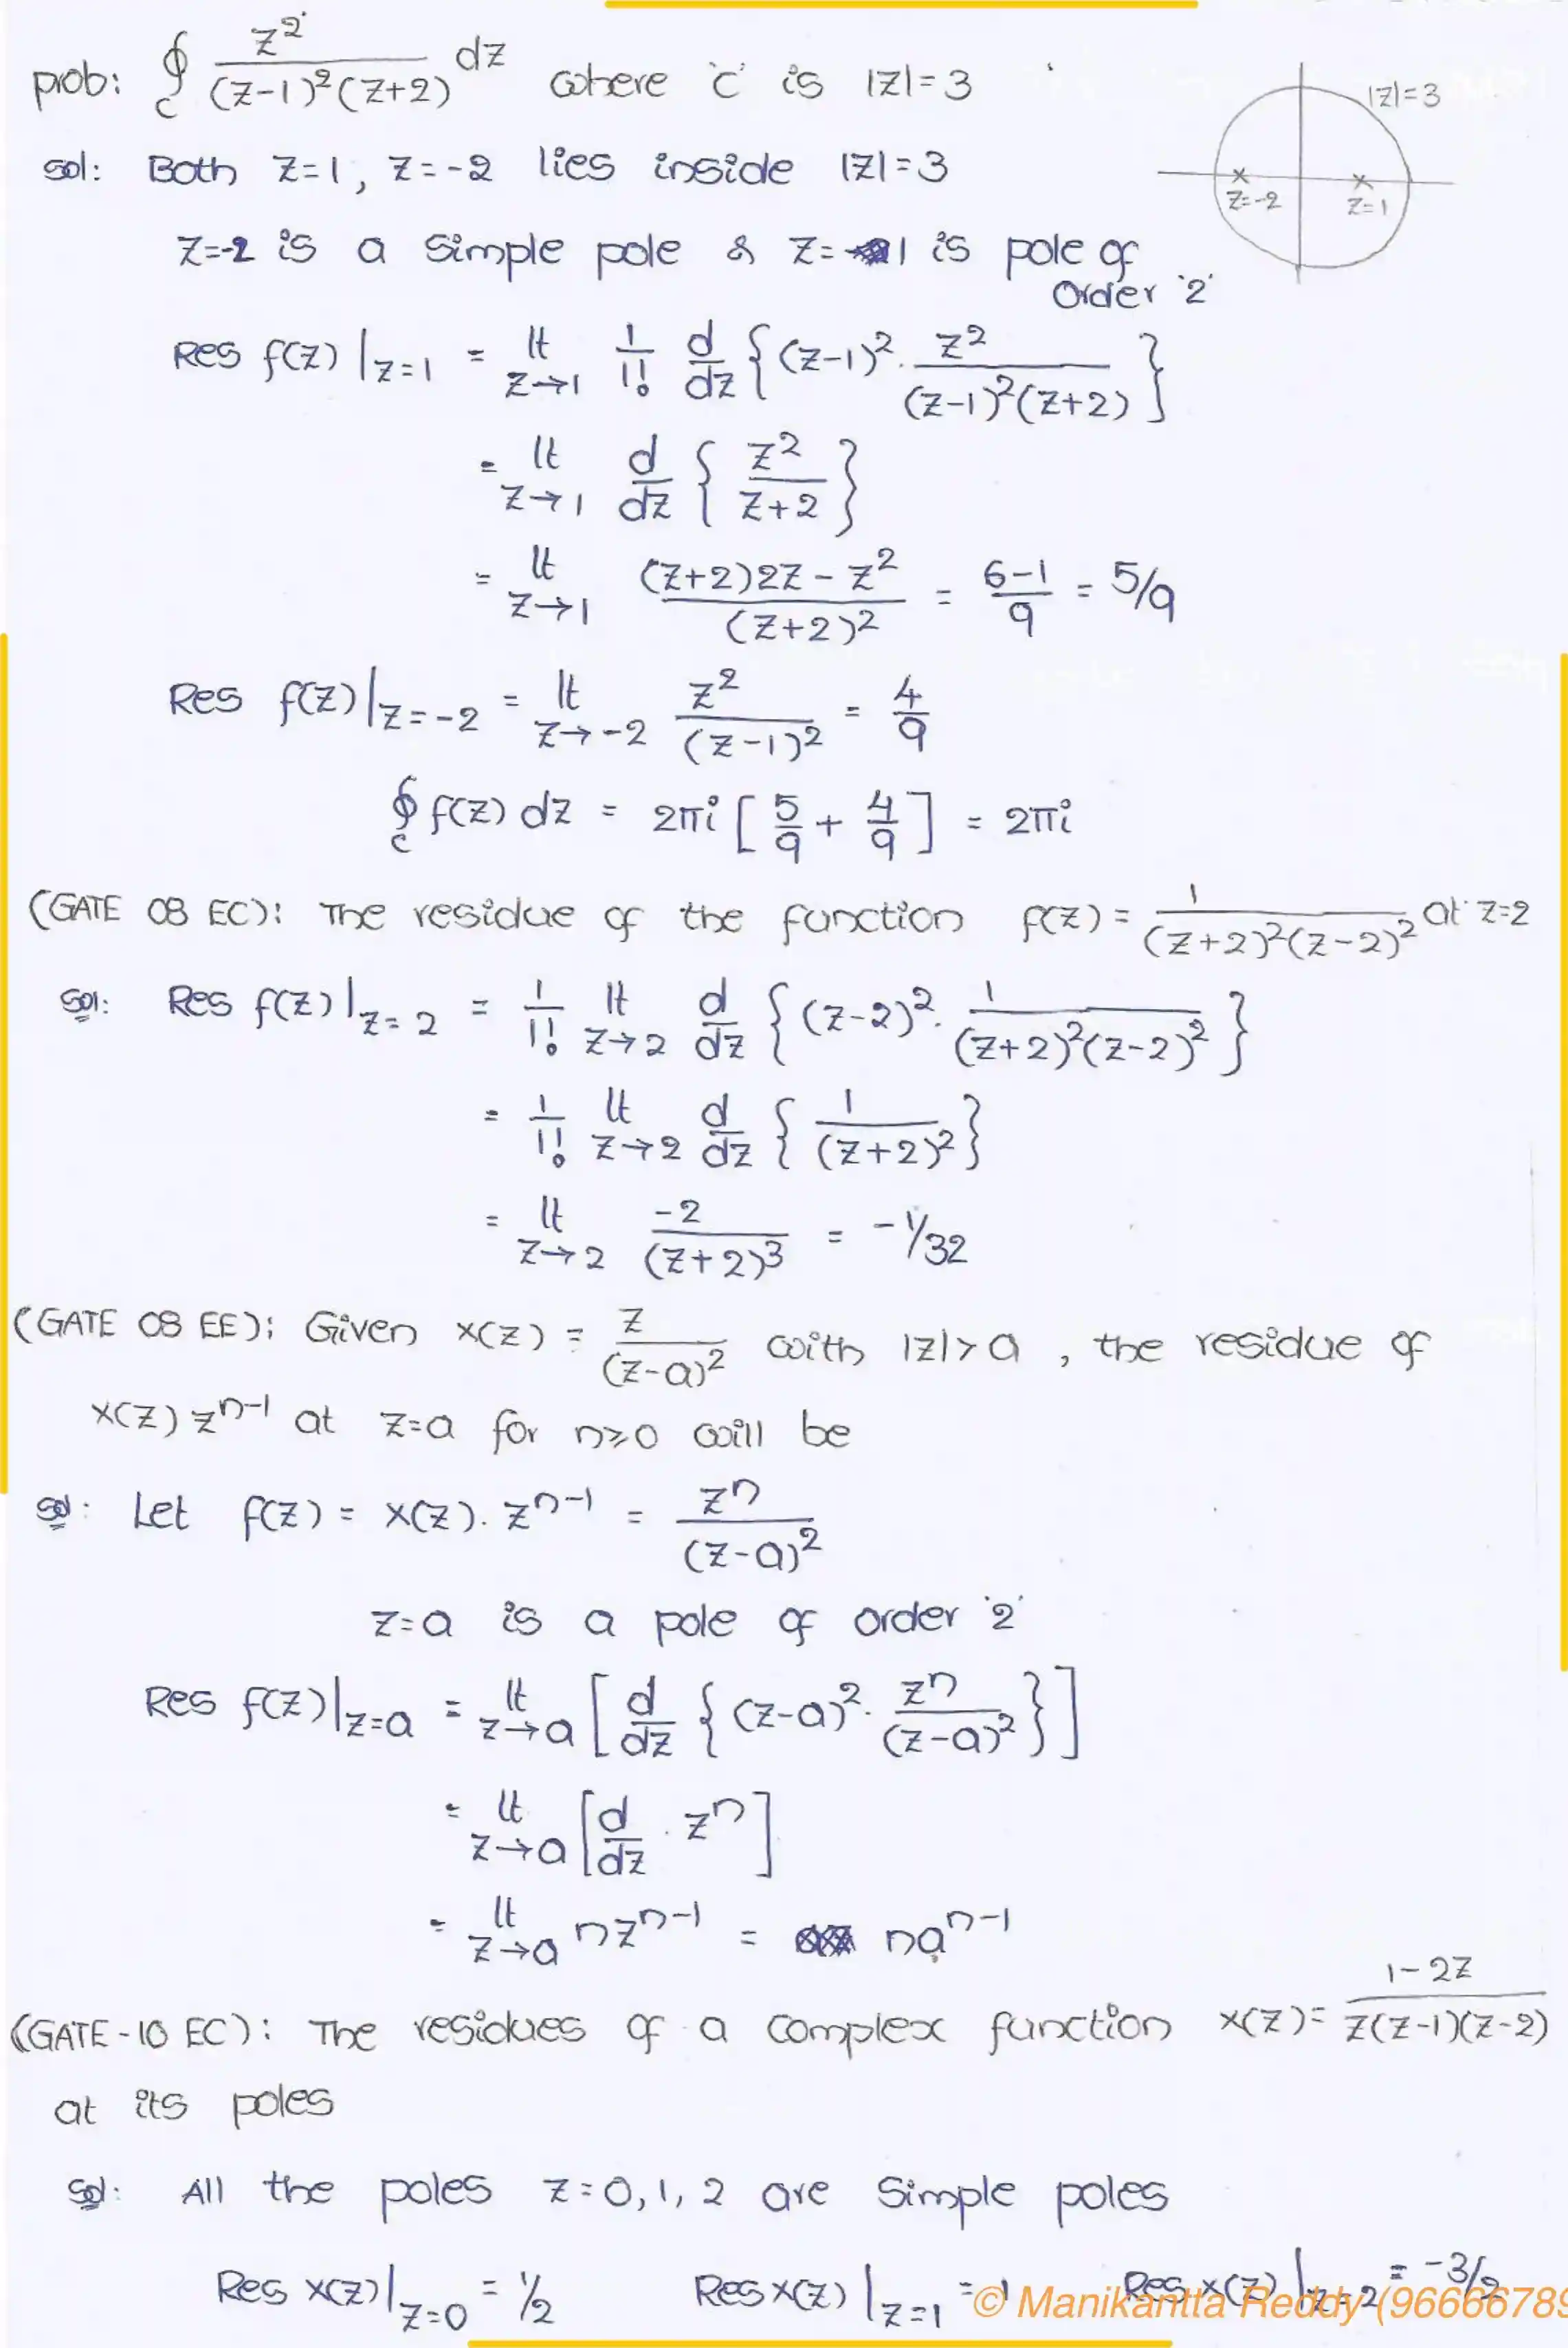 prob: ∮_C z²/((z-1)²(z+2)) dz where 'c' is |z|=3
|z|=3
z=-2
z=1
sol: Both z=1, z=-2 lies inside |z|=3
z=-2 is a simple pole & z=1 is pole of
order '2'
Res f(z)|z=1 = lt z→1 1/1! d/dz {(z-1)². z²/((z-1)²(z+2))}
= lt z→1 d/dz { z²/(z+2) }
= lt z→1 ((z+2)2z - z²)/(z+2)² = (6-1)/9 = 5/9
Res f(z)|z=-2 = lt z→-2 z²/(z-1)² = 4/9
∮_C f(z) dz = 2πi [5/9 + 4/9] = 2πi
(GATE 08 EC): The residue of the function f(z) = 1/((z+2)²(z-2)²) at z=2
sol: Res f(z)|z=2 = 1/1! lt z→2 d/dz {(z-2)². 1/((z+2)²(z-2)²)}
= 1/1! lt z→2 d/dz { 1/(z+2)² }
= lt z→2 -2/(z+2)³ = -1/32
(GATE 08 EE): Given x(z) = z/(z-a)² with |z|>a , the residue of
x(z) zⁿ⁻¹ at z=a for n≥0 will be
sol: Let f(z) = x(z). zⁿ⁻¹ = zⁿ/(z-a)²
z=a is a pole of order '2'
Res f(z)|z=a = lt z→a [d/dz {(z-a)². zⁿ/(z-a)²}]
= lt z→a [d/dz . zⁿ]
= lt z→a nzⁿ⁻¹ = naⁿ⁻¹
(GATE-10 EC): The residues of a complex function x(z)= (1-2z)/(z(z-1)(z-2))
at its poles
sol: All the poles z=0,1,2 are simple poles
Res x(z)|z=0 = 1/2 Res x(z)|z=1 = 1 Res x(z)|z=2 = -3/2
© Manikantta Reddy (96666789